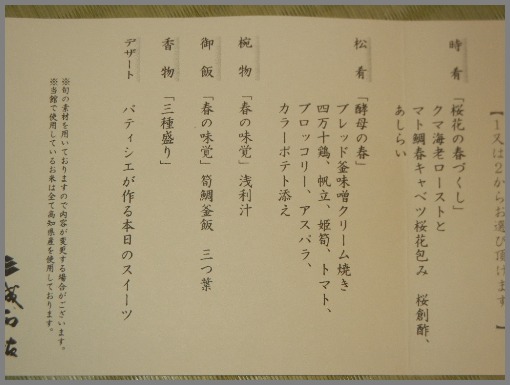 【1又は2からお選び頂けます。】
時肴「桜花の春づくし」
クマ海老ローストと
マト鯛春キャベツ桜花包み 桜創酢、
あしらい
松肴「酵母の春」
ブレッド釜味噌クリーム焼き
四万十鶏、帆立、姫筍、トマト、
ブロッコリー、アスパラ、
カラーポテト添え
椀物「春の味覚」浅利汁
御飯「春の味覚」筍鯛釜飯 三つ葉
香物「三種盛り」
デザート パティシエが作る本日のスイーツ
※旬の素材を用いておりますので内容が変更する場合がございます。
※当館で使用しているお米は全て高知県産を使用しております。